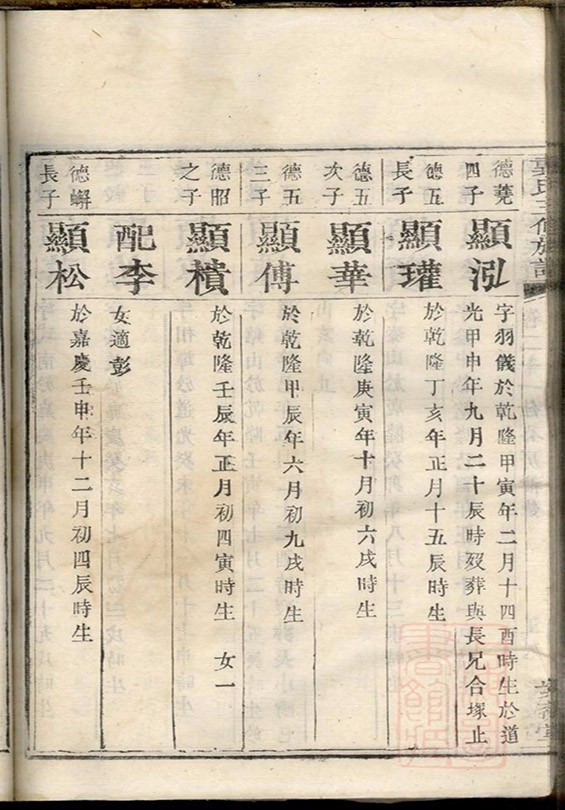 德蕘
四子
顯泓
字羽儀於乾隆甲寅年二月十四酉時生於道
光甲申年九月二十辰時歿葬與長兄合塚止
德五
長子
顯瓘
於乾隆丁亥年正月十五辰時生
德五
次子
顯華
於乾隆庚寅年十月初六戌時生
德五
三子
顯傅
於乾隆甲辰年六月初九戌時生
德昭
之子
顯橨
於乾隆壬辰年正月初四寅時生 女一
配李
女適彭
德蠏
長子
顯松
於嘉慶壬申年十二月初四辰時生